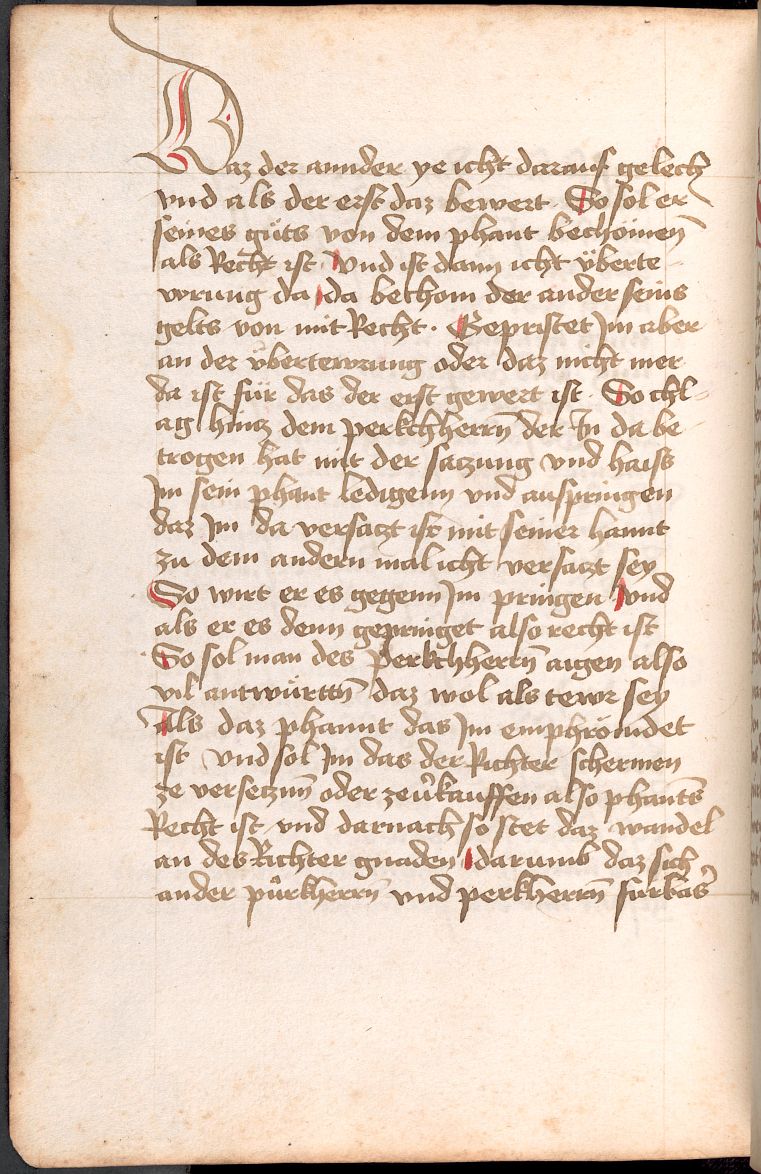 Daz der annder ye icht darauf gelech
vnd als der erst daz bewert · So sol er
seines güts von dem phant bechömen
als Recht ist · vnd ist dann icht überte
wrung da da bechom der ander seins
gelts von mit Recht · Gepristet Jm aber
an der übertewrung oder daz nicht mer
da ist für das der erst gewert ist · So chl
ag hintz dem perkchherrn̄ der Jn da be
trogen hat mit der saczung vnd haiss
Jm sein phant ledigenn vnd auspringen
daz Jm da versaczt ist mit seiner hannt
zu dem andern mal icht versaczt sey
So wirt er es gegenn Jm pringen vnd
als er es denn gepringet also recht ist
So sol man des perkchherrn̄ aigen also
vil antwürttn̄ daz wol als tewr sey
Als daz phannt das Jm emphrömdet
ist vnd sol Jm das der Richter schermen
ze versecznn̄ oder zeuͦkauffen also phants
Recht ist vnd darnach so stet daz wandel
an des Richter gnaden darumb daz sich
ander pürkherrn̄ vnd perkherrn̄ fürbas